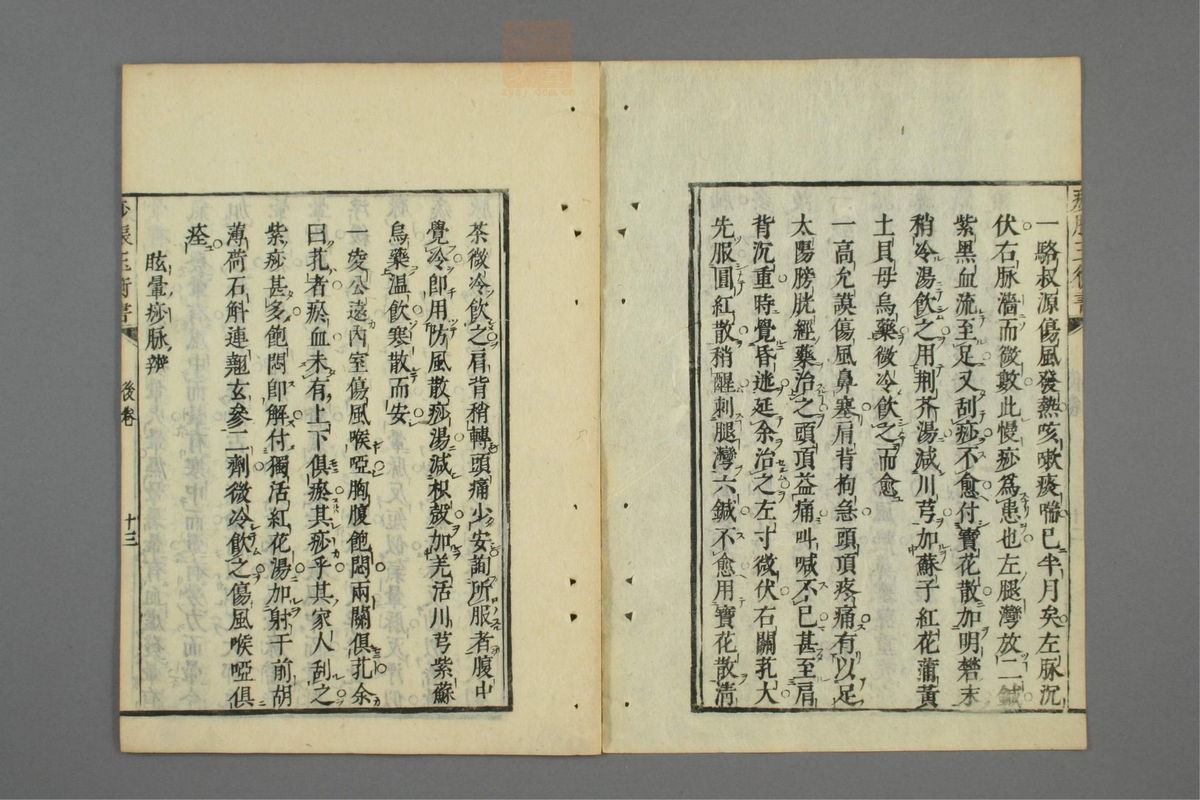 一駱叔源傷風發熱咳嗽痰喘已半月矣左脉沉
伏右脉濇而微數此慢痧爲患也左腿灣放二鍼
紫黑血流至足又刮痧不愈付寶花散加明礬末
稍冷湯飲之用荆芥湯減川芎加蘇子紅花蒲黃
土貝母烏藥微冷飲之而愈
一高允謨傷風鼻塞肩背拘急頭項疼痛有以足
太陽膀胱經藥治之頭項益痛叫喊不已甚至肩
背沉重時覺昏迷延余治之左寸微伏右關芤大
先服圓紅散稍醒刺腿灣六鍼不愈用寶花散淸
茶微冷飲之肩背稍轉頭痛少安詢所服者腹中
覺冷卽用防風散痧湯減枳殼加羌活川芎紫蘇
烏藥溫飲寒散而安
一凌公遠內室傷風喉啞胸腹飽悶兩關俱芤余
曰芤者瘀血未有上下俱瘀其痧乎其家人刮之
紫痧甚多飽悶卽解付獨活紅花湯加射干前胡
薄荷石斛連翹玄參二劑微冷飲之傷風喉啞俱
痊
眩暈痧脉辨
痧脹玉衡書
後卷
十三